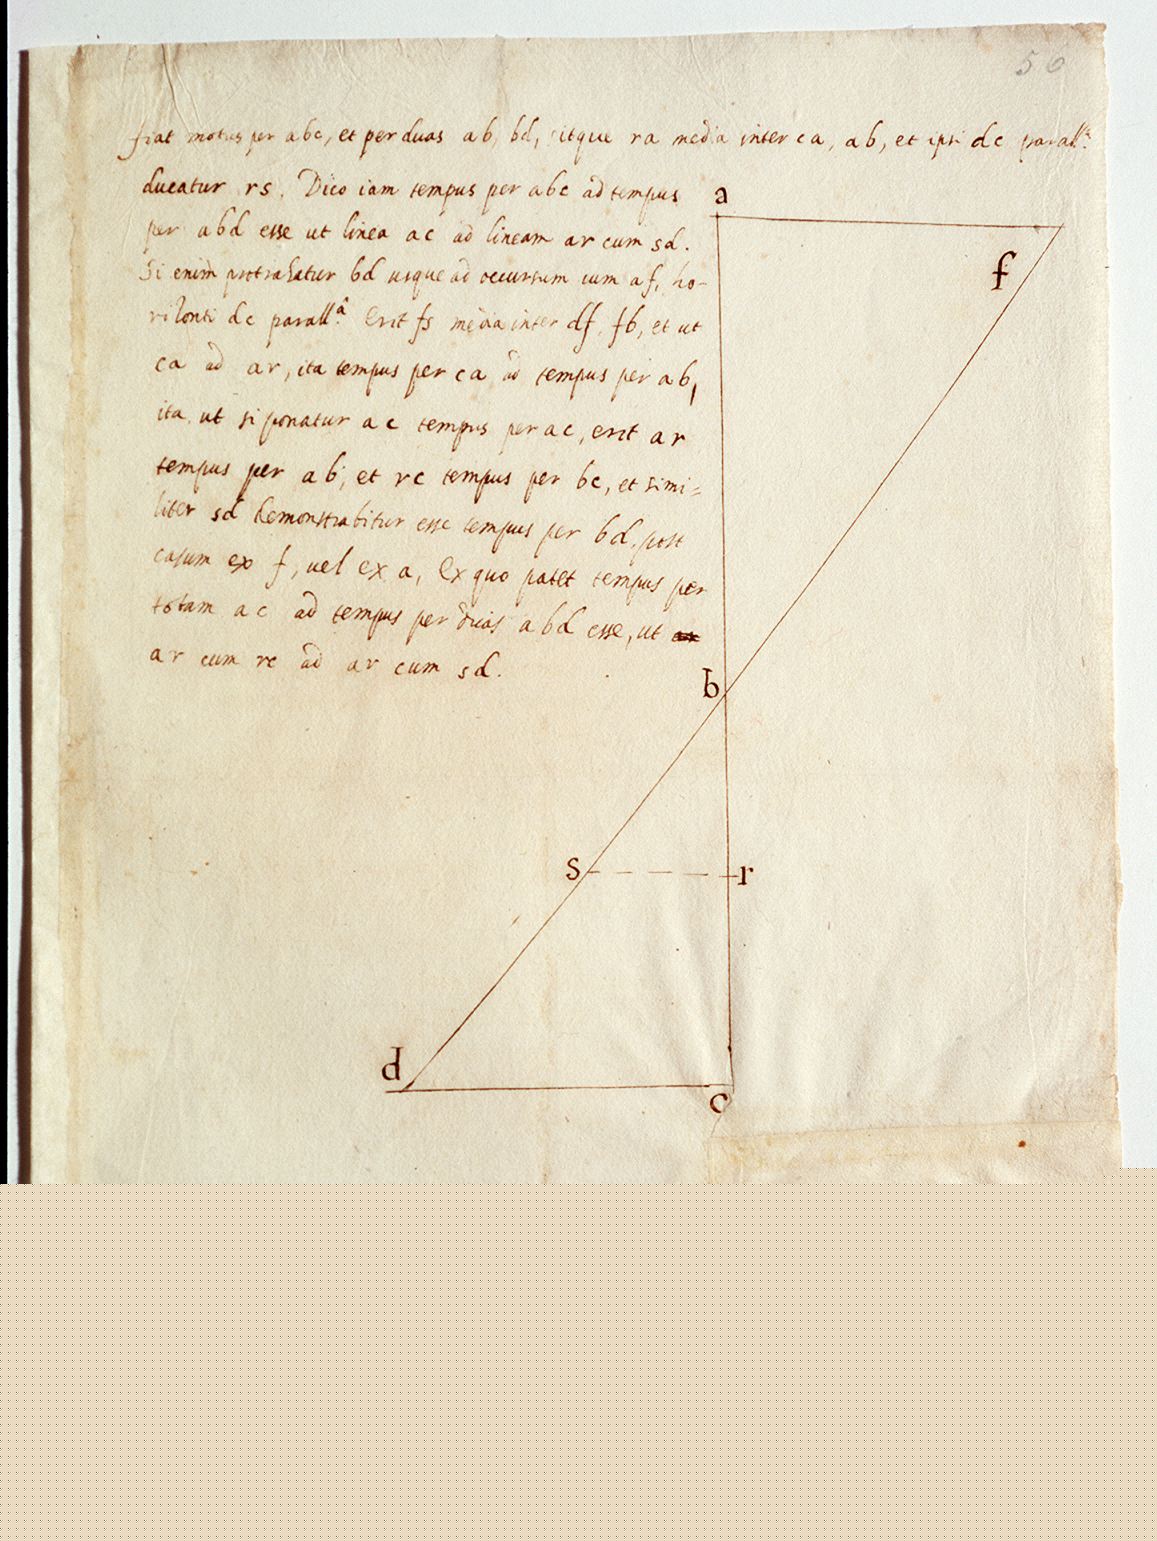 56
fiat motus per abc, et per duas ab, bd, sitque ra media inter ca, ab, et ipsi dc parall.ᵃ
ducatur rs. Dico iam tempus per abc ad tempus
per abd esse ut linea ac ad lineam ar cum sd.
Si enim protrahatur bd usque ad occursum cum af, ho-
rizonti dc parall.ᵃ Erit fs media inter df, fb, et ut
ca ad ar, ita tempus per ca ad tempus per ab,
ita, ut si ponatur ac tempus per ac, erit ar
tempus per ab, et rc tempus per bc, et simi=
liter sd demonstrabitur esse tempus per bd, post
casum ex f, vel ex a, Ex quo patet tempus per
totam ac ad tempus per duas abd esse, ut
ar cum rc ad ar cum sd.
a
f
b
s
r
d
c